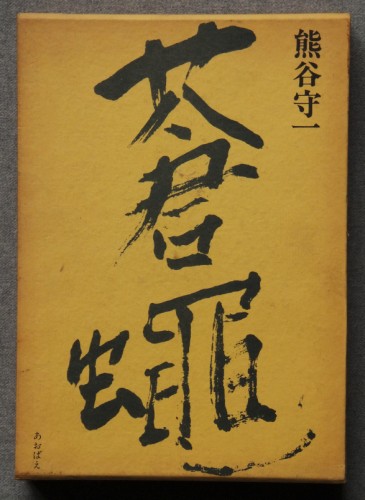 熊谷守一
蒼蠅
あおばえ